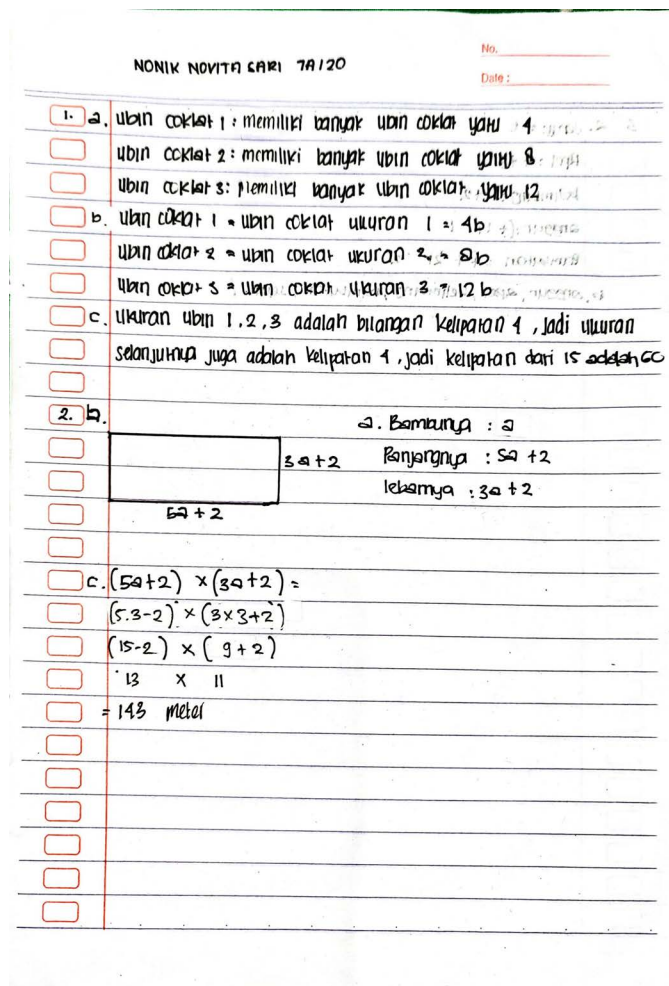 No.
NONIK NOVITA SARI 7A/20
Date :
1. a. ubin coklat 1 : memiliki banyak ubin coklat yaitu 4
ubin coklat 2 : memiliki banyak ubin coklat yaitu 8
ubin coklat 3 : memiliki banyak ubin coklat yaitu 12
b. ubin coklat 1 = ubin coklat ukuran 1 = 4b
ubin coklat 2 = ubin coklat ukuran 2 = 8b
ubin coklat 3 = ubin coklat ukuran 3 = 12 b
c. ukuran ubin 1, 2, 3 adalah bilangan kelipatan 4, jadi ukuran
selanjutnya juga adalah kelipatan 4, jadi kelipatan dari 15 adalah 60
2. b.
a. Bambunya : a
3a+2 Panjangnya : 5a +2
lebarnya : 3a +2
5a + 2
c. (5a+2) × (3a+2) =
(5.3-2) × (3×3+2)
(15-2) × ( 9+2)
13 × 11
= 143 meter